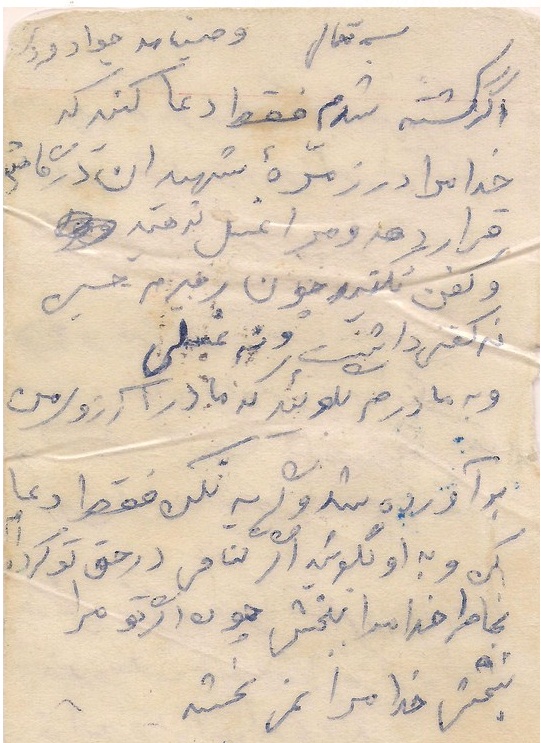 بسمه تعالی وصینامه جواد
اگر کشته شدم فقط دعا کنند که
خدا مرا در زمرهٔ شهیدان
قرار دهد و مرا غسل ندهید
و کفن نکنید چون رهبرم حسین
نه کفنی داشت و نه غسلی
و به مادرم بگوئید که مادر آرزوی من
برآورده شد و گریه نکن فقط دعا
کن و به او بگوئید اگر گناهی در حق تو کرده‌ام
بخاطر خدا مرا ببخش چون اگر تو مرا
نبخشی خدا مرا نمی بخشد